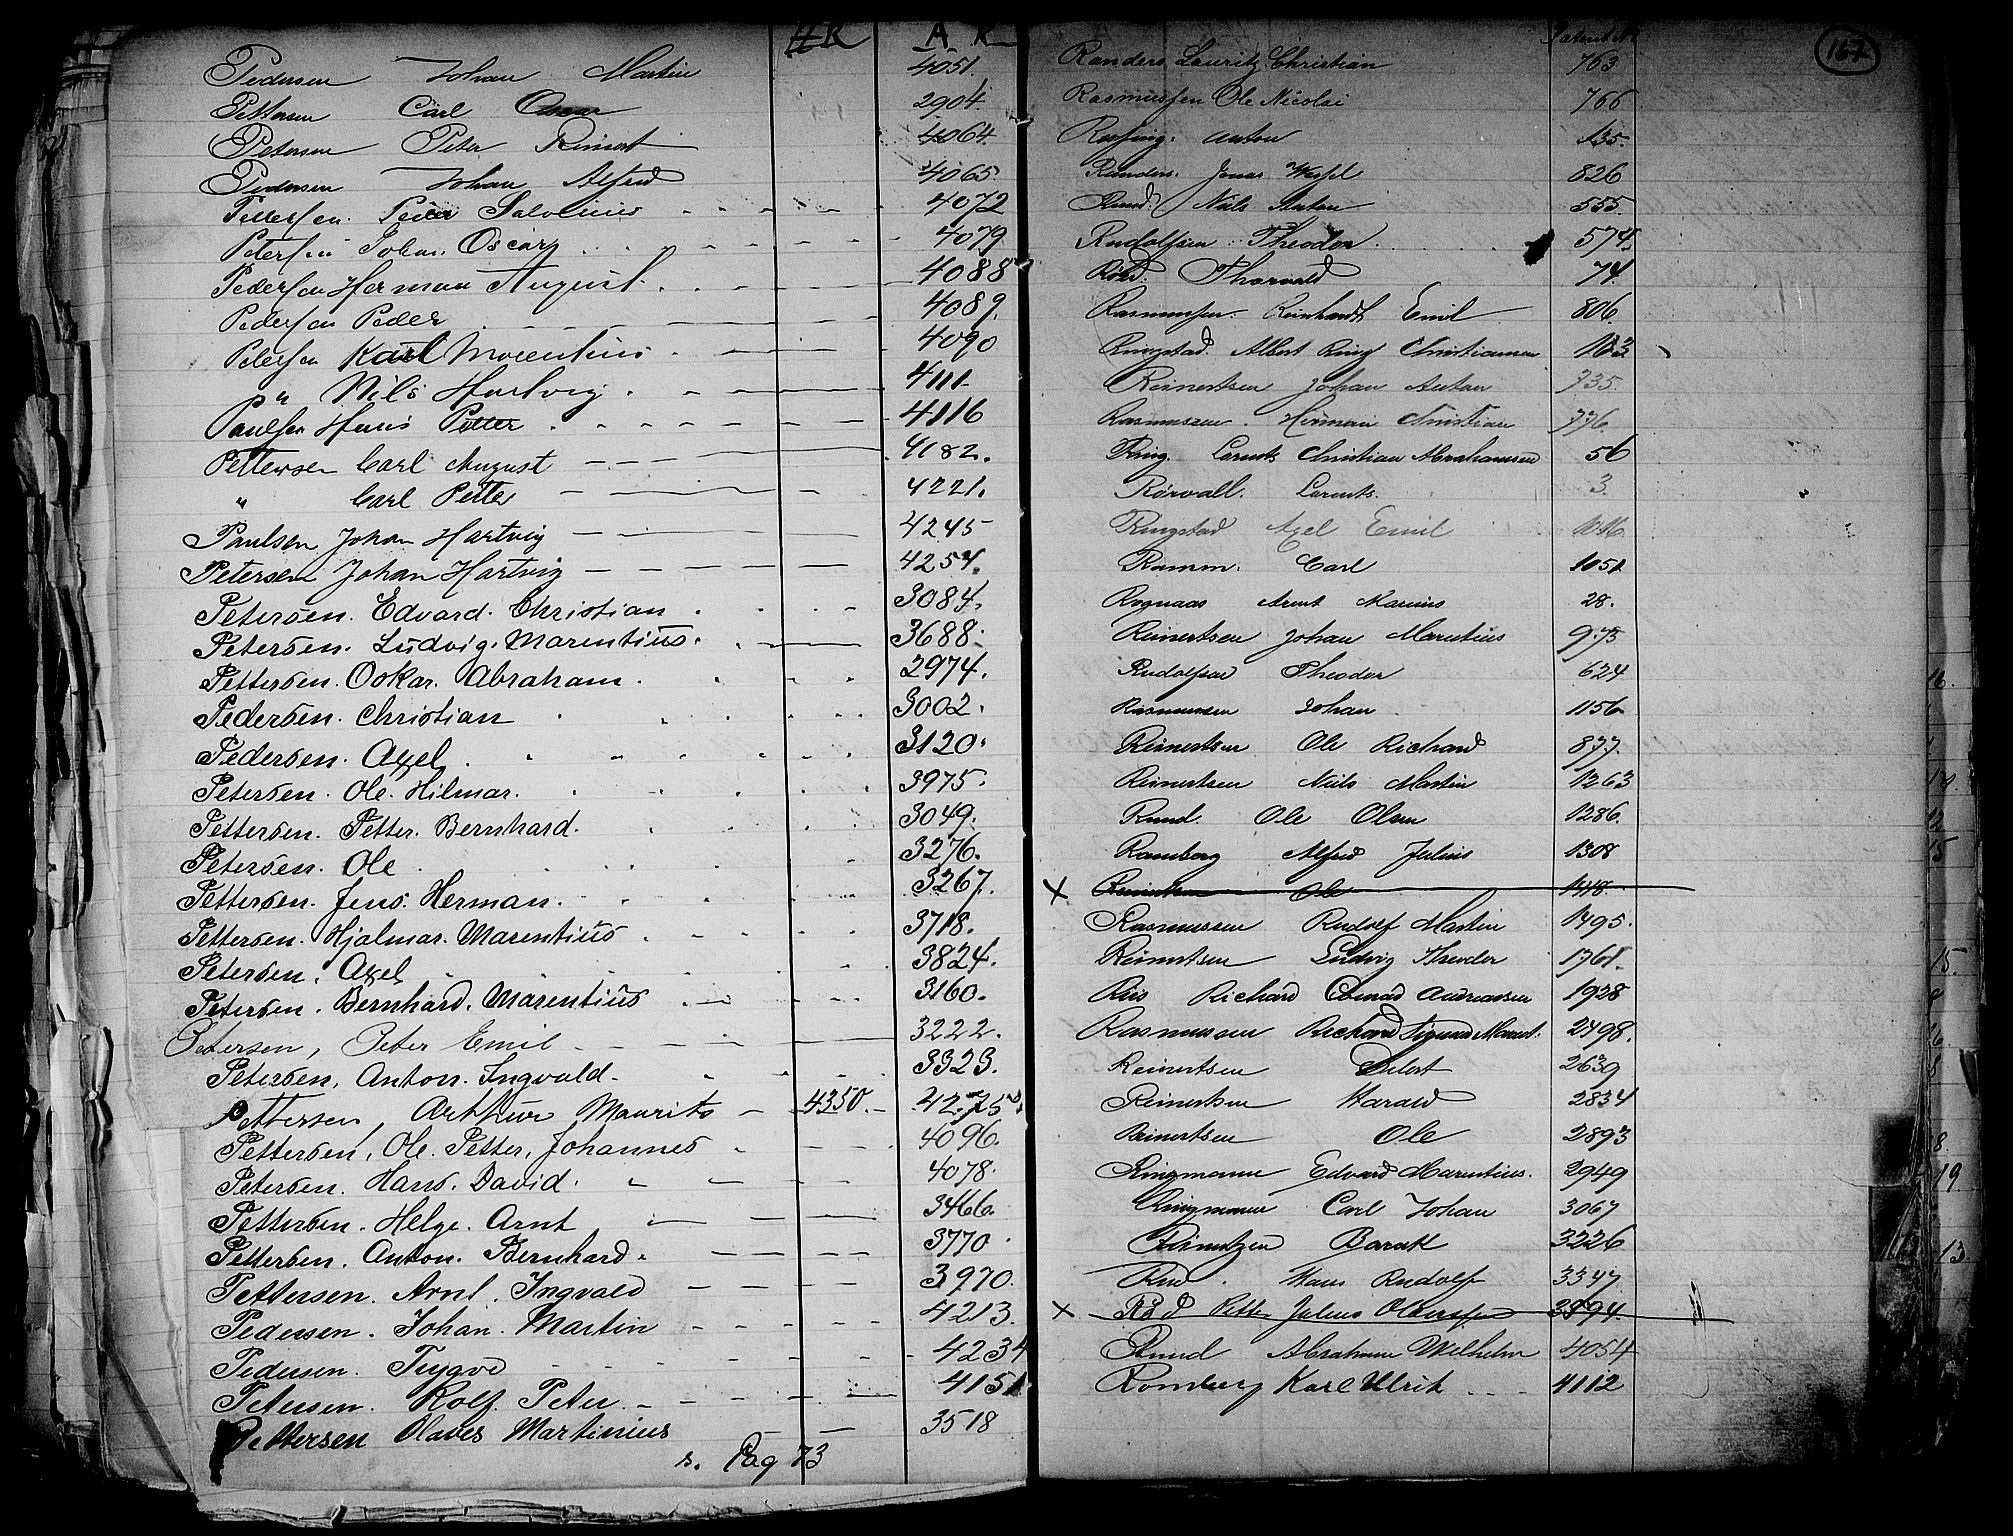 HR A R
Pedersen Johan Martin 4051.
Pettersen Carl Oscar 2904.
Petersen Peter Reinert 4064.
Pedersen Johan Alfred 4065.
Pettersen. Peder Salvesius 4072
Petersen Johan Oscar 4079
Pedersen Herman August. 4088
Pedersen Peder 4089.
Petersen Karl Morentius 4090
" Nils Hartvig 4111
Paulsen Hans Petter 4116
Pettersen Carl August 4182.
" Carl Petter 4221.
Paulsen Johan Hartvig 4245
Petersen Johan Hartvig 4254.
Petersen. Edvard. Christian 3084.
Petersen. Ludvig. Marentius. 3688.
Pettersen. Oskar. Abraham. 2974.
Pedersen. Christian 3002.
Pedersen. Axel. 3120.
Petersen. Ole. Hilmar. 3975.
Pettersen. Petter. Bernhard. 3049.
Petersen. Ole. 3276.
Pettersen. Jens. Herman. 3267.
Pettersen. Hjalmar. Marentius. 3718.
Petersen. Axel. 3824.
Petersen. Bernhard. Marentius 3160.
Petersen, Peter Emil 3222.
Petersen, Anton. Ingvald. 3323.
Pettersen, Arthur Maurits 4350. 4275.
Pettersen, Ole. Petter. Johannes 4096.
Petersen. Hans. David. 4078.
Pettersen. Helge. Arnt 3466.
Pettersen. Anton. Bernhard. 3770.
Pettersen. Arnt. Ingvald 3970.
Pedersen. Johan. Martin 4213.
Pedersen. Trygve 4234
Petersen. Rolf. Peter. 4151
Pettersen Olaves Martinius 3518
s. Pag 73
Patent No 167
Randers, Lauritz Christian 763
Rasmussen Ole Nicolai 766
Anton 135.
Randers. Jonas Wessel 826
Rund. Nils Anton 555.
Rudolfsen. Theodor. 574.
Röed. Thorvald 74.
Rasmussen. Reinhardt Emil 806.
Ringstad. Albert Ring Christiansen 183
Reinertsen Johan Anton 735.
Rasmussen. Herman Christian 776
Ring. Lorents Christian Abrahamsen 56
Rørvall. Lorents. 3.
Ringstad Axel Emil 1016
Ramm. Carl 1051
Rognaas Arnt Marius 28.
Reinertsen Johan Marentius 973
Rudolfsen Theodor 624
Rasmussen Johan 1156
Reinertsen Ole Richard 877.
Reinertsen Niels Martin 1263
Rund. Ole Olsen 1286.
Ramberg Alfred Julius 1308
x Reinertsen Ole 1418.
Rasmussen Rudolf Martin 1495.
Reinertsen Ludvig Theodor 1761.
Riis Richard Conrad Andreassen 1928
Rasmussen Richard Sigvard Marent. 2498.
Reinertsen 2639
Reinertsen Harald 2834
Reinertsen Ole 2893
Ringmann Edvard Marentius. 2949
Ringmann Carl Johan 3067
Reinertzen Barak 3226
Rud. Hans Rudolf 3347
x Röd Petter Julius 3894.
Rund Abraham Wilhelm 4054
Romberg Karl Ulrik 4112